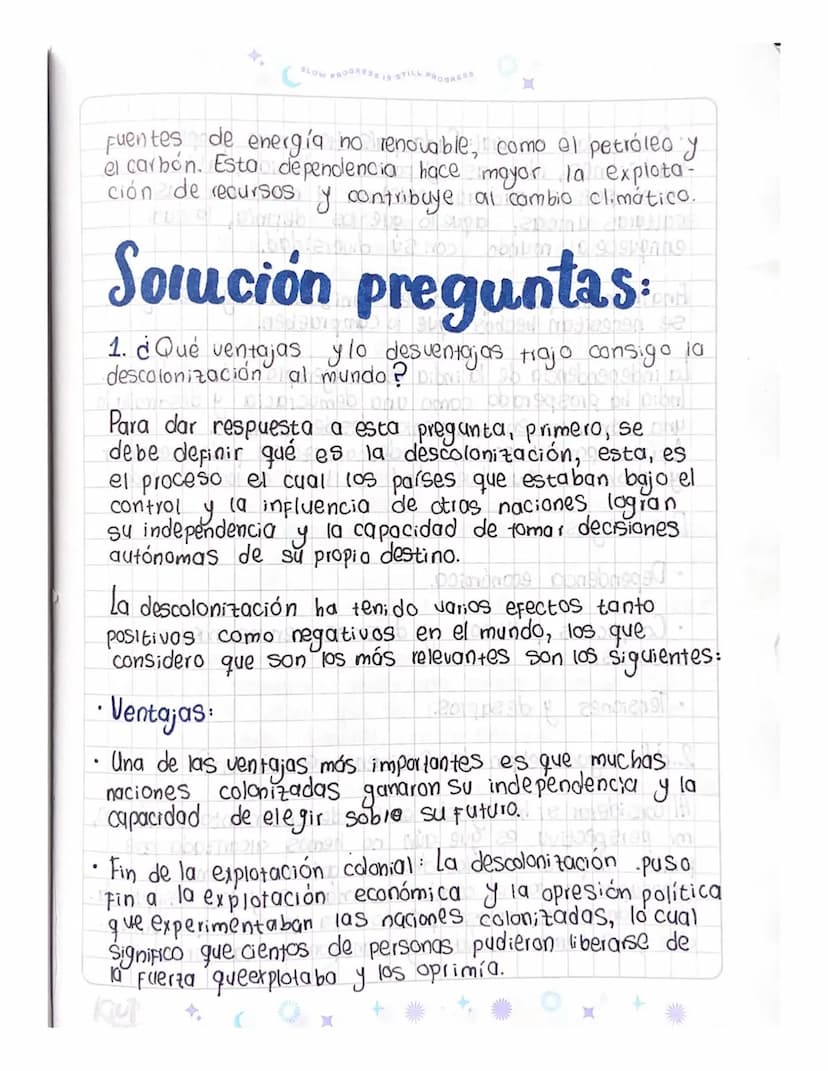 SLOW PROGRESS IS STILL PROGRESS
Fuentes de energía no renovable, como el petróleo y
el carbón. Esta dependencia hace mayor la explota-
ción de recursos y contribuye al cambio climático.
Solución preguntas:
1. ¿Qué ventajas y/o desventajas trajo consigo la
descolonización al mundo?
Para dar respuesta a esta pregunta, primero, se
debe definir qué es la descolonización, esta, es
el proceso el cual los países que estaban bajo el
control y la influencia de otras naciones logran
su independencia y la capacidad de tomar decisiones
autónomas de su propio destino.
La descolonización ha tenido varios efectos tanto
positivos como negativos en el mundo, los que
considero que son los más relevantes son los siguientes:
· Ventajas:
· Una de las ventajas más importantes es que muchas
naciones colonizadas ganaron su independencia y la
capacidad de elegir sobre su futuro.
· Fin de la explotación colonial: La descolonización puso
fin a la explotación económica y la opresión política
que experimentaban las naciones colonizadas, lo cual
significo que cientos de personas pudieran liberarse de
la fuerza que explotaba y los oprimía.